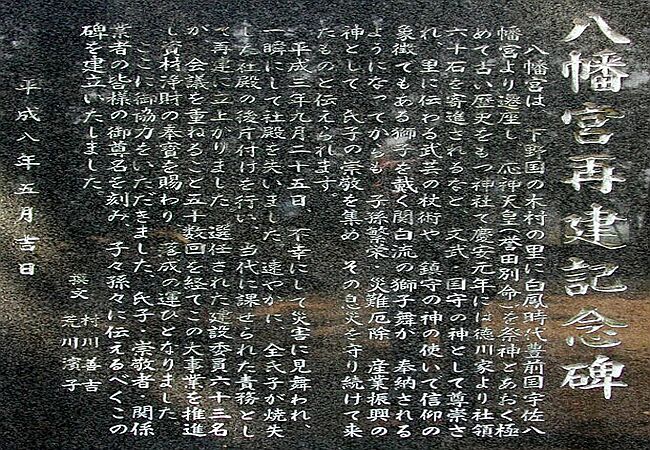 八幡宮再建記念碑
八幡宮は、下野国の木村の里に白鳳時代豊前国宇佐八
幡宮より遷座し、応神天皇(誉田別命)を祭神とあおぐ極
めて古い歴史をもつ神社で慶安元年には徳川家より社領
六十石を寄進されるなど、文武・国守の神として尊崇さ
れ、里に伝わる武芸の杖術や、鎮守の神の使いで信仰の
象徴でもある獅子を戴く関白流の獅子舞が、奉納される
ようになってからも、子孫繁栄・災難厄除・産業振興の
神として、氏子の崇敬を集め、その息災を守り続けて来
たものと伝えられます。
平成三年九月二十五日、不幸にして災害に見舞われ、
一瞬にして社殿を失いました。速やかに、全氏子が焼失
した社殿の後片付けを行い、当代に課せられた責務とし
て再建に立上がりました。選任された建設委員六十三名
が、会議を重ねること五十数回を経てこの大事業を推進
し資材浄財の奉賽を賜わり、落成の運びとなりました。
ここに御協力をいただきました、氏子・崇敬者・関係
業者の皆様の御尊名を刻み、子々孫々に伝えるべくこの
碑を建立いたしました。
撰文 村川善吉
荒川濱子
平成八年五月吉日